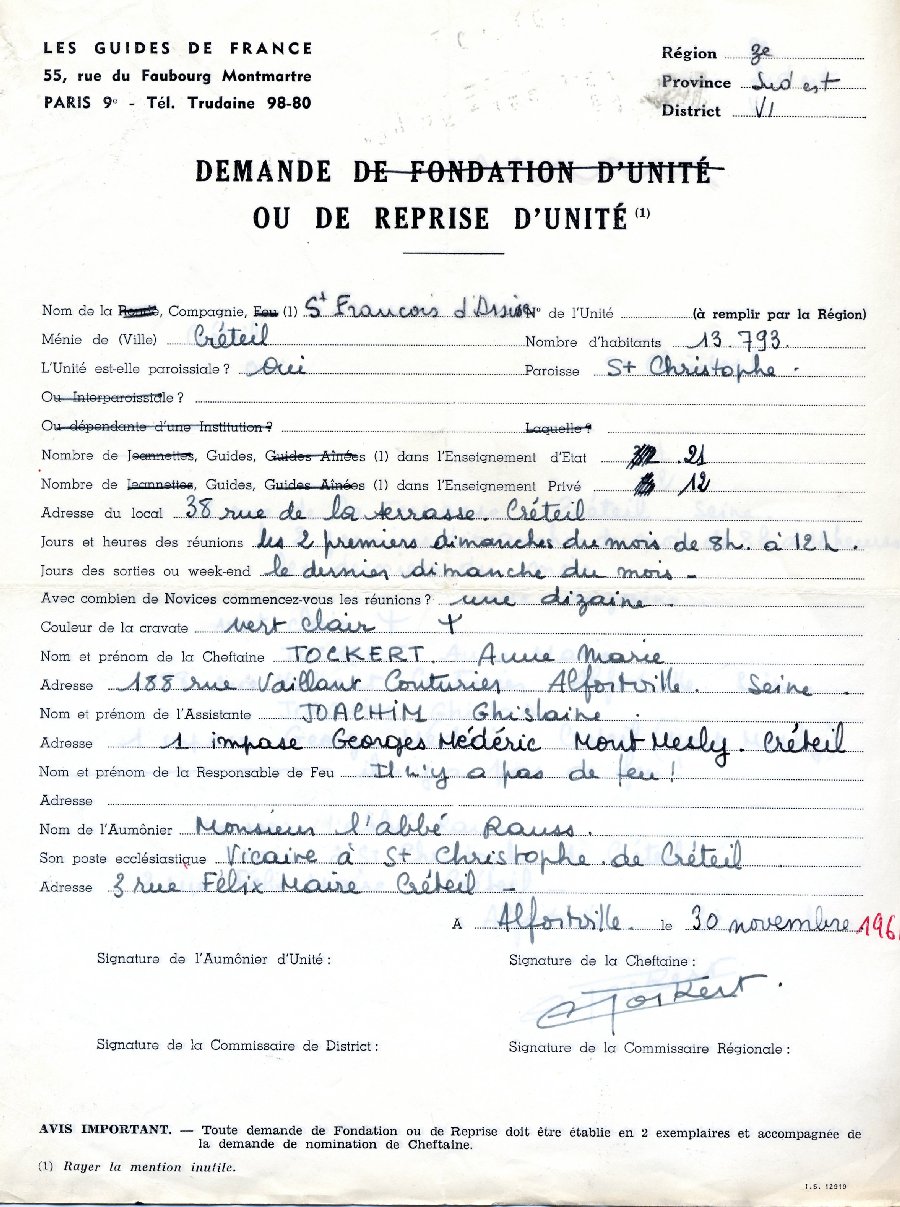 LES GUIDES DE FRANCE
55, rue du Faubourg Montmartre
PARIS 9e - Tél. Trudaine 98-80
Région 3e
Province Sud est
District VI
DEMANDE DE FONDATION D'UNITÉ
OU DE REPRISE D'UNITÉ (1)
Nom de la Ronde, Compagnie, Feu (1) St Francois d'Assise N° de l'Unité (à remplir par la Région)
Ménie de (Ville) Créteil Nombre d'habitants 13.793.
L'Unité est-elle paroissiale ? Oui Paroisse St Christophe .
Ou Interparoissiale ?
Ou dépendante d'une Institution ? Laquelle ?
Nombre de Jeannettes, Guides, Guides Aînées (1) dans l'Enseignement d'Etat 21
Nombre de Jeannettes, Guides, Guides Aînées (1) dans l'Enseignement Privé 12
Adresse du local 38 rue de la terrasse. Créteil
Jours et heures des réunions les 2 premiers dimanches du mois de 8h. à 12h.
Jours des sorties ou week-end le dernier dimanche du mois -
Avec combien de Novices commencez-vous les réunions ? une dizaine.
Couleur de la cravate vert clair
Nom et prénom de la Cheftaine TOCKERT. Anne Marie
Adresse 188 rue Vaillant Couturier Alfortville. Seine .
Nom et prénom de l'Assistante JOACHIM Ghislaine .
Adresse 1 impase Georges Médéric Mont Mesly. Créteil
Nom et prénom de la Responsable de Feu Il n'y a pas de feu !
Adresse
Nom de l'Aumônier Monsieur l'abbé Rauss.
Son poste ecclésiastique Vicaire à St Christophe de Créteil
Adresse 3 rue Félix Maire Créteil -
A Alfortville. le 30 novembre 196
Signature de l'Aumônier d'Unité :
Signature de la Cheftaine :
A Tockert.
Signature de la Commissaire de District :
Signature de la Commissaire Régionale :
AVIS IMPORTANT. — Toute demande de Fondation ou de Reprise doit être établie en 2 exemplaires et accompagnée de
la demande de nomination de Cheftaine.
(1) Rayer la mention inutile.
I.S. 12919